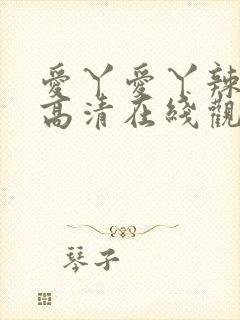 愛丫愛丫辣
高清在綫觀
琴子